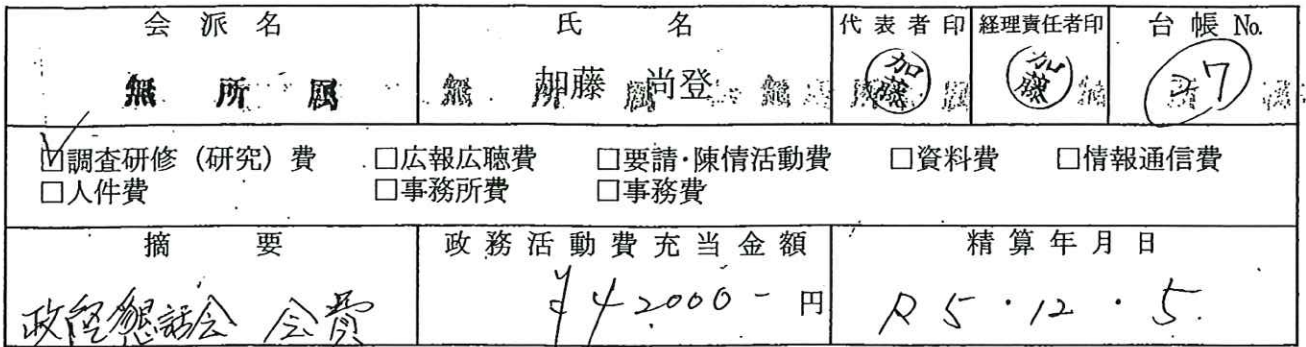 会派名 氏名 代表者印 経理責任者印 台帳No.
無所属 加藤 尚登 加藤 加藤 27
☑調査研修（研究）費 □広報広聴費 □要請・陳情活動費 □資料費 □情報通信費
□人件費 □事務所費 □事務費
摘要 政務活動費充当金額 精算年月日
政経懇話会 会費 ¥42000- 円 R5・12・5.